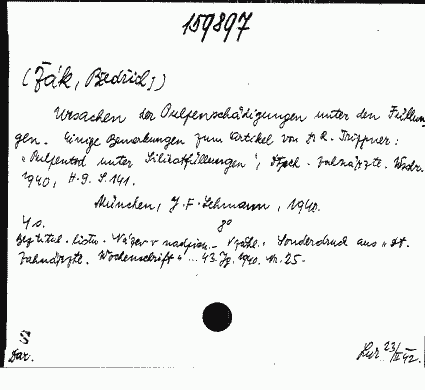 159897
(Žák, Bedřich)
Ursachen der Pulpenschädigungen unter den Füllun-
gen. Einige Bemerkungen zum Artikel von H. R. Trippner:
"Pulpentod unter Silikatfüllungen", Dtsch. zahnärzte. Wschr.
1940, H. 9. S. 141.
München, J. F. Lehmann, 1940.
4 s. 8°
Bez titul. listu. Název v nadpisu. - V záhl.: Sonderdruck aus "Dt.
Zahnärzte. Wochenschrift" ... 43. Jg. 1940. Nr. 25.
S
Dar.
23/II 42.